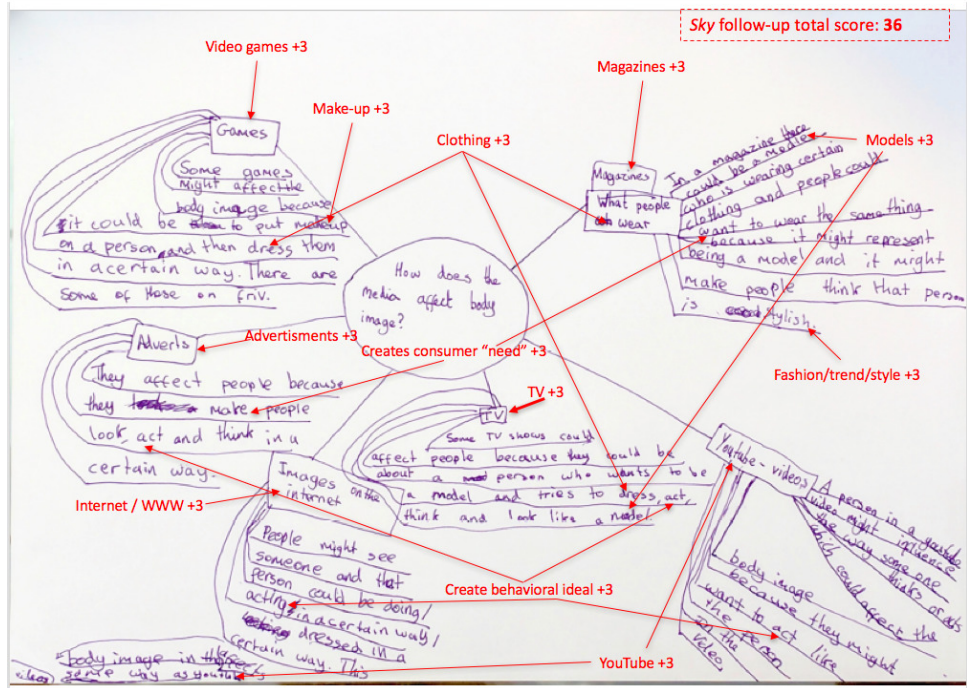 Sky follow-up total score: 36
Video games +3
Magazines +3
Make-up +3
Clothing +3
Models +3
Games
Some games
might affect the
body image because
it could be to put makeup
on a person, and then dress them
in a certain way. There are
some of those on friv.
Magazines
What people
wear
In a magazine there
could be a model
who is wearing certain
clothing and people could
want to wear the same thing
because it might represent
being a model and it might
make people think that person
is stylish.
How does the
media affect body
image?
Advertisments +3
Creates consumer “need” +3
Fashion/trend/style +3
Adverts
They affect people because
they make people
look, act and think in a
certain way.
TV +3
TV
Some TV shows could
affect people because they could be
about a person who wants to be
a model and tries to dress, act,
think and look like a model.
Internet / WWW +3
Images on the
internet
People might see
someone and that
person could be doing/
acting in a certain way/
dressed in a
certain way. This
body image in the
same way as youtube
videos
Create behavioral ideal +3
YouTube +3
Youtube - videos
A person in a youtube
video might influence
the way some one
thinks or acts
which could affect the
body image
because they might
want to act like
the person
on the
video.